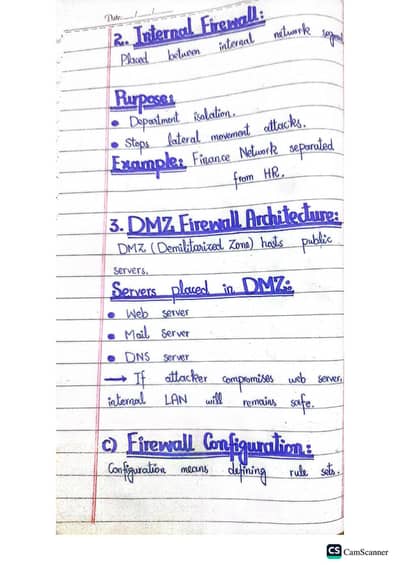 Date: __/__/__
2. Internal Firewall:
Placed between internal network
Purpose:
• Department isolation.
• Stops lateral movement attacks.
Example: Finance Network separated
from HR.
3. DMZ Firewall Architecture:
DMZ (Demilitarized Zone) hosts public
servers.
Servers placed in DMZ:
• Web server
• Mail Server
• DNS server
→ If attacker compromises web server,
internal LAN will remains safe.
c) Firewall Configuration:
Configuration means defining rule sets.
CS CamScanner